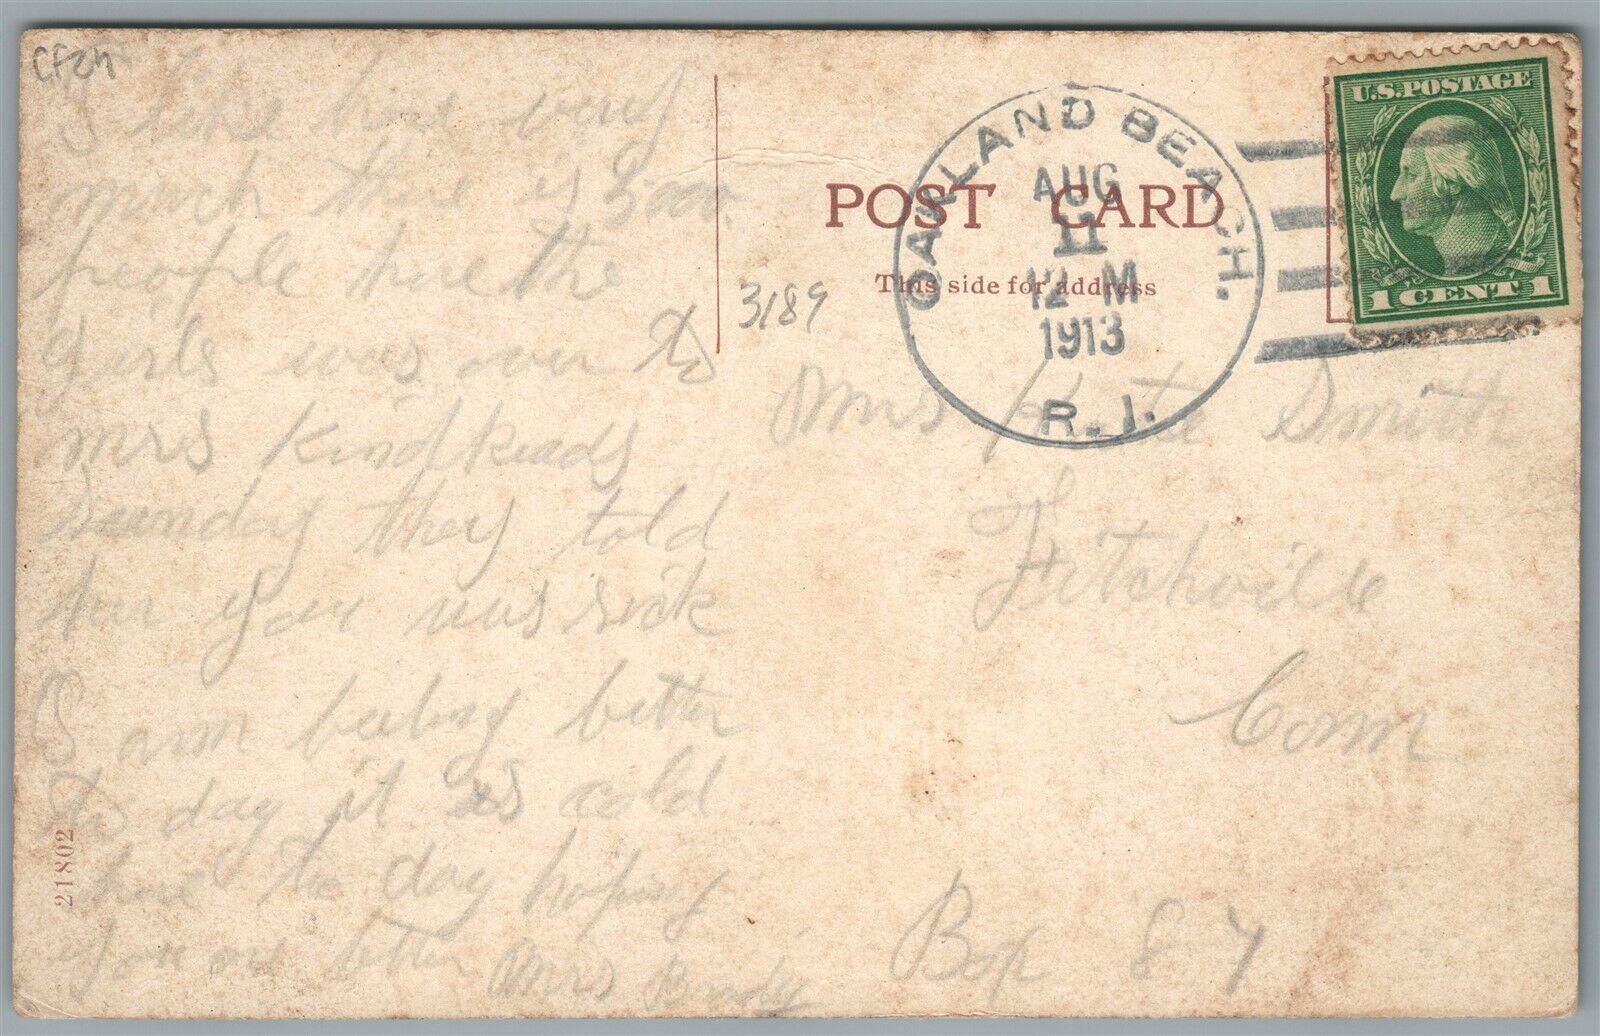 CF24
I like hire very
much there is 3000
people hire the
girls was over to
mrs Kindkeads
Sunday they told
her you was sick
I am feeling better
to day it is cold
hire to day hoping
you are better Mrs
21802
3189
POST CARD
This side for address
OAKLAND BEACH.
AUG
11
12 M
1913
R.I.
U.S. POSTAGE
1 CENT 1
Mrs Kate Smith
Fitchville
Conn
Box 87